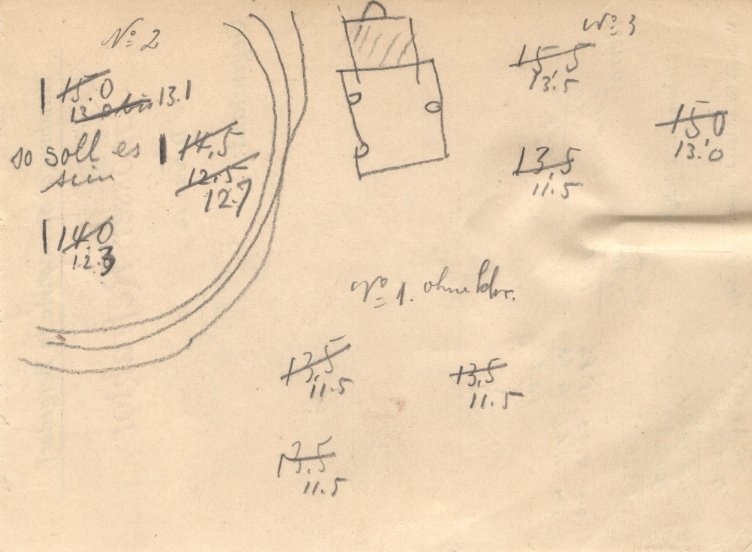 No 2
15.0
13.1
so soll es
sein
14,5
12,5
12.7
14.0
12.3
No 3
15 5
13.5
15 0
13.0
13,5
11.5
No 1. ohne
13,5
11.5
13,5
11.5
13.5
11.5